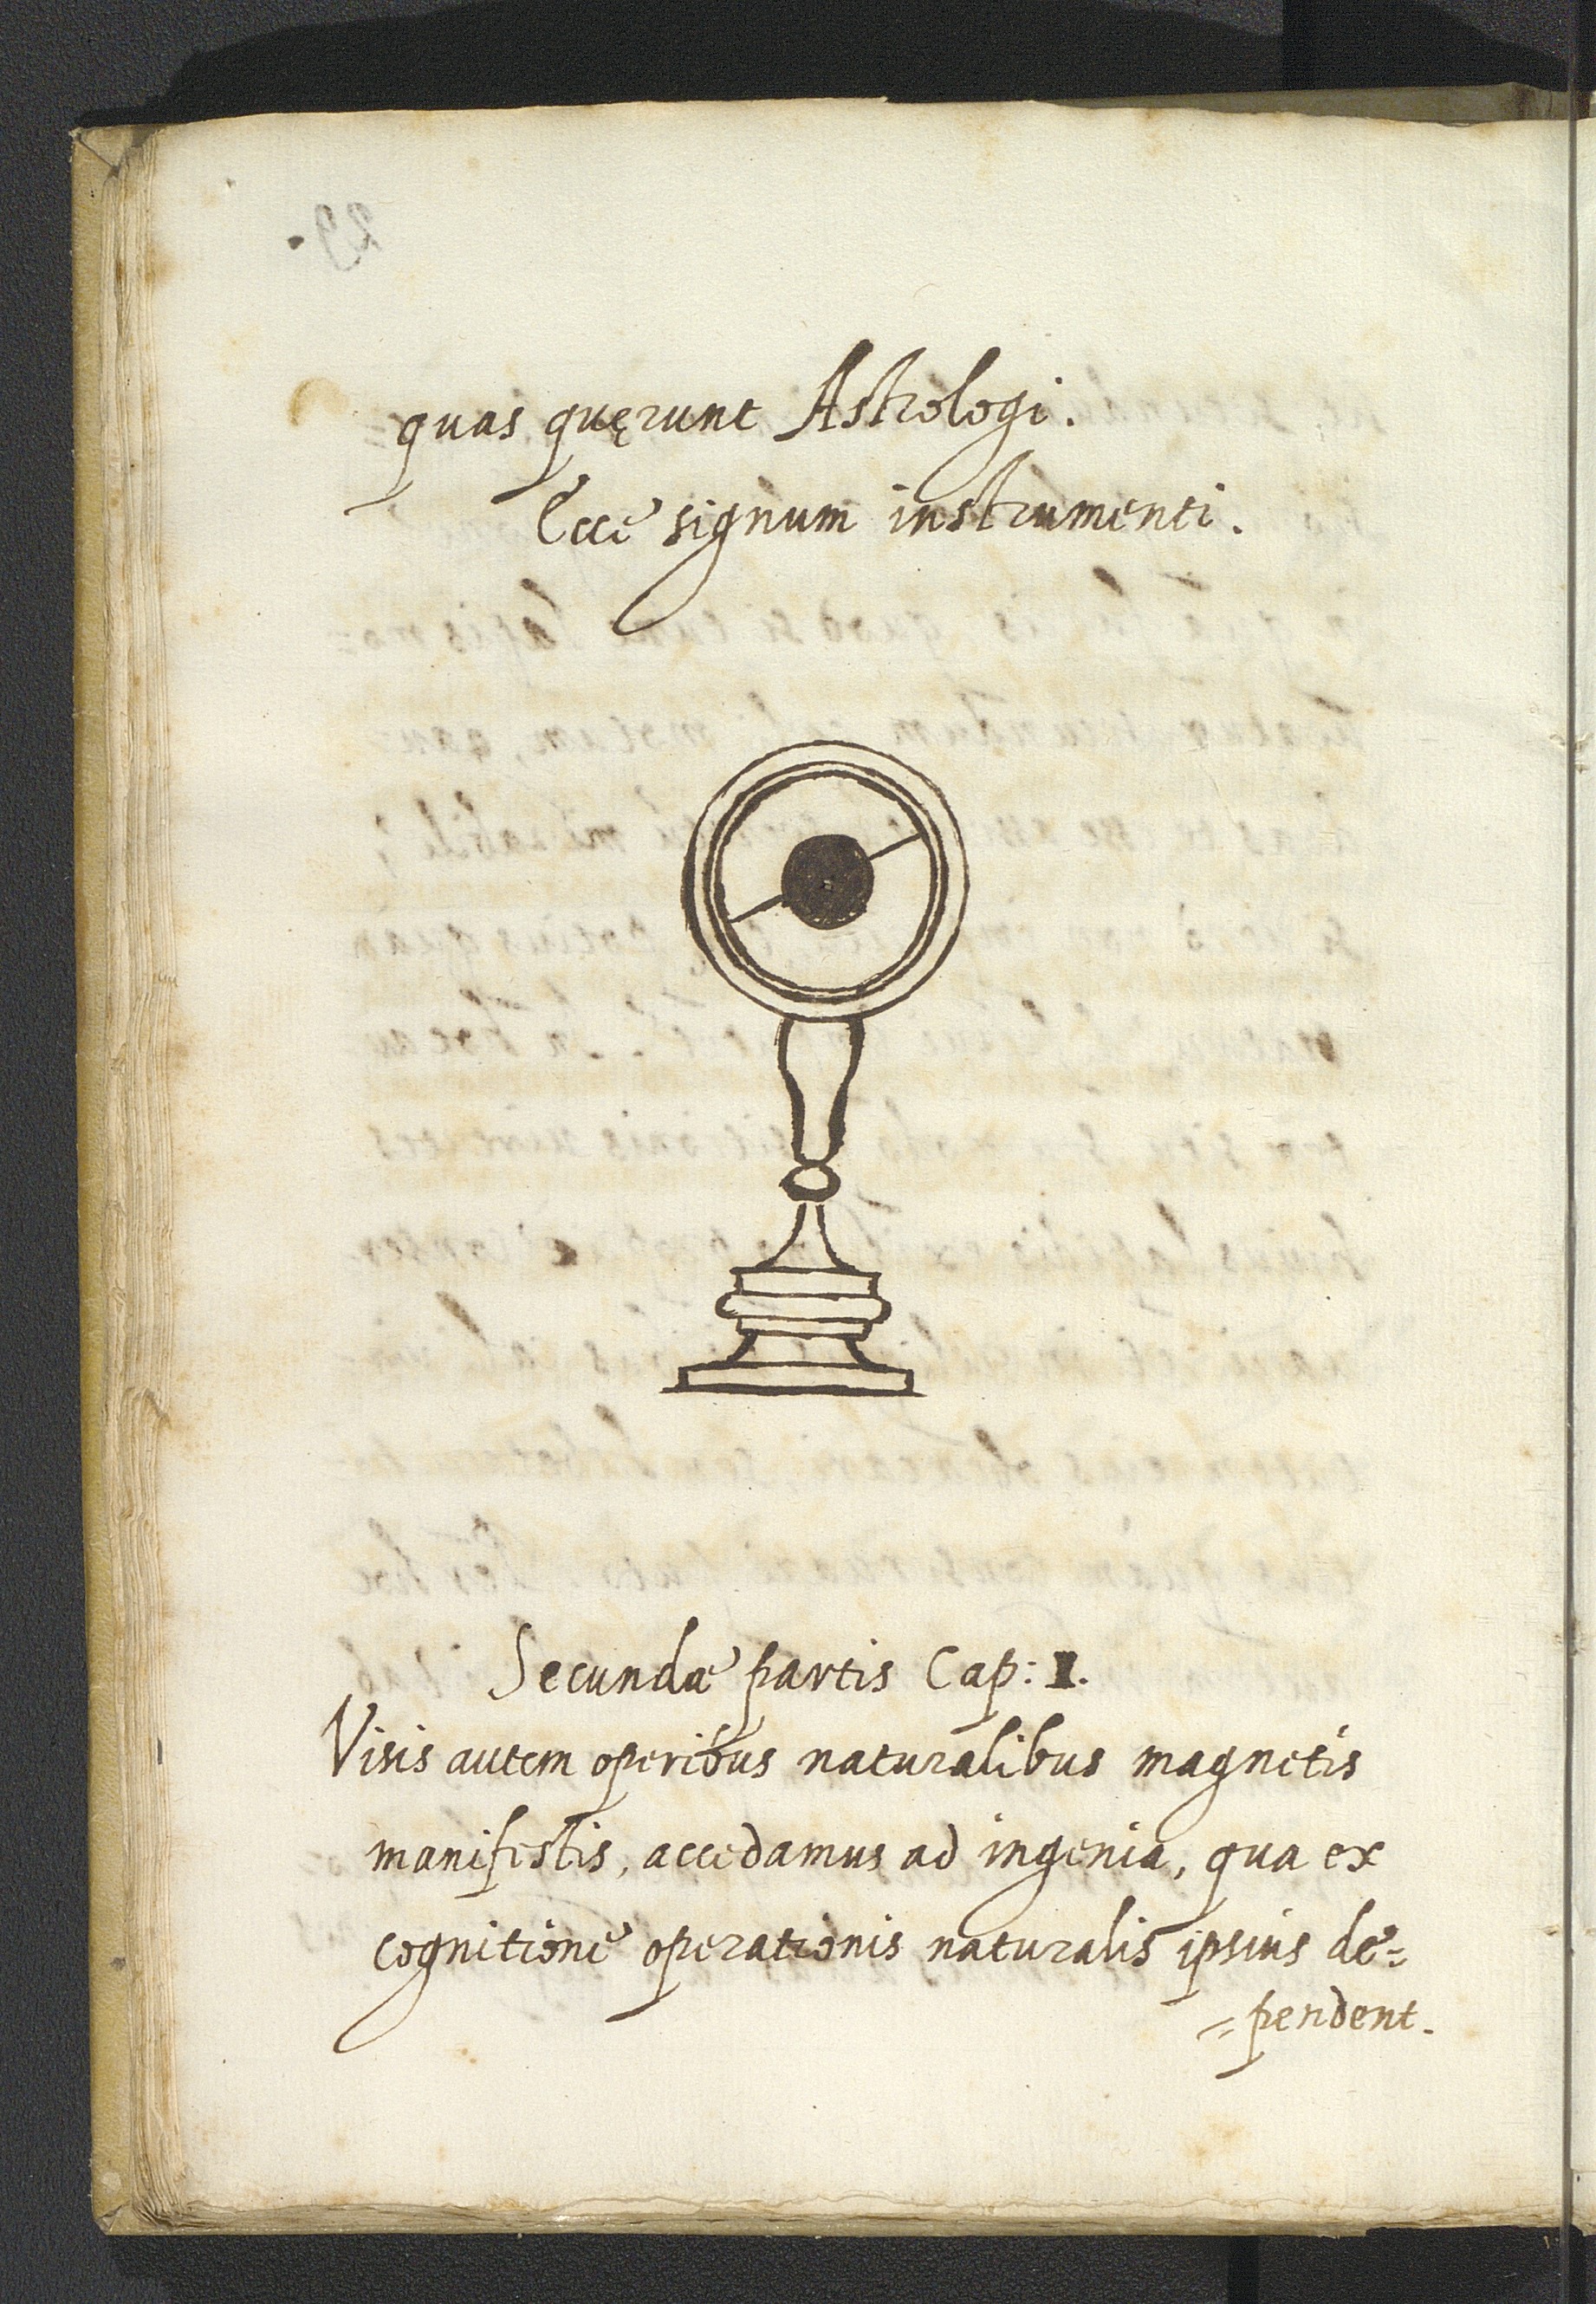 quas quęrunt Astrologi.
Ecce signum instrumenti.
Secundæ partis Cap: I.
Visis autem operibus naturalibus magnetis
manifestis, accedamus ad ingenia, qua ex
cognitione operationis naturalis ipsius de=
=pendent.